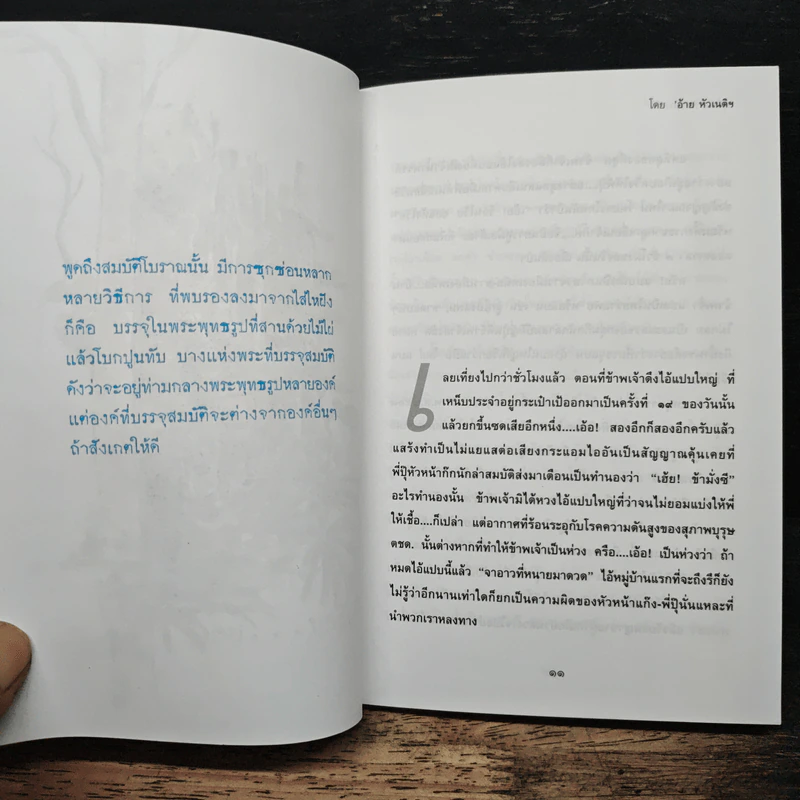 พูดถึงสมบัติโบราณนั้น มีการซุกซ่อนหลาก
หลายวิธีการ ที่พบรองลงมาจากใส่ไหฝัง
ก็คือ บรรจุในพระพุทธรูปที่สานด้วยไม้ไผ่
แล้วโบกปูนทับ บางแห่งพระที่บรรจุสมบัติ
ดังว่าจะอยู่ท่ามกลางพระพุทธรูปหลายองค์
แต่องค์ที่บรรจุสมบัติจะต่างจากองค์อื่นๆ
ถ้าสังเกตให้ดี
โดย 'อ้าย หัวเนติฯ
เลยเที่ยงไปกว่าชั่วโมงแล้ว ตอนที่ข้าพเจ้าดึงไอ้แปบใหญ่ ที่
เหน็บประจำอยู่กระเป๋าเป้ออกมาเป็นครั้งที่ ๑๙ ของวันนั้น
แล้วยกขึ้นซดเสียอีกหนึ่ง....เอ้อ! สองอีกก็สองอีกครับแล้ว
แสร้งทำเป็นไม่แยแสต่อเสียงกระแอมไออันเป็นสัญญาณคุ้นเคยที่
พี่ปุ๊หัวหน้าก๊กนักล่าสมบัติส่งมาเตือนเป็นทำนองว่า “เฮ้ย! ข้ามั่งซี”
อะไรทำนองนั้น ข้าพเจ้ามิได้หวงไอ้แปบใหญ่ที่ว่าจนไม่ยอมแบ่งให้พี่
ให้เชื้อ....ก็เปล่า แต่อากาศที่ร้อนระอุกับโรคความดันสูงของสุภาพบุรุษ
ตชด. นั้นต่างหากที่ทำให้ข้าพเจ้าเป็นห่วง ครือ....เอ้อ! เป็นห่วงว่า ถ้า
หมดไอ้แปบนี้แล้ว “จาอาวที่หนายมาดวด” ไอ้หมู่บ้านแรกที่จะถึงรึก็ยัง
ไม่รู้ว่าอีกนานเท่าใดก็ยกเป็นความผิดของหัวหน้าแก๊ง-พี่ปุ๊นั่นแหละที่
นำพวกเราหลงทาง
๑๑